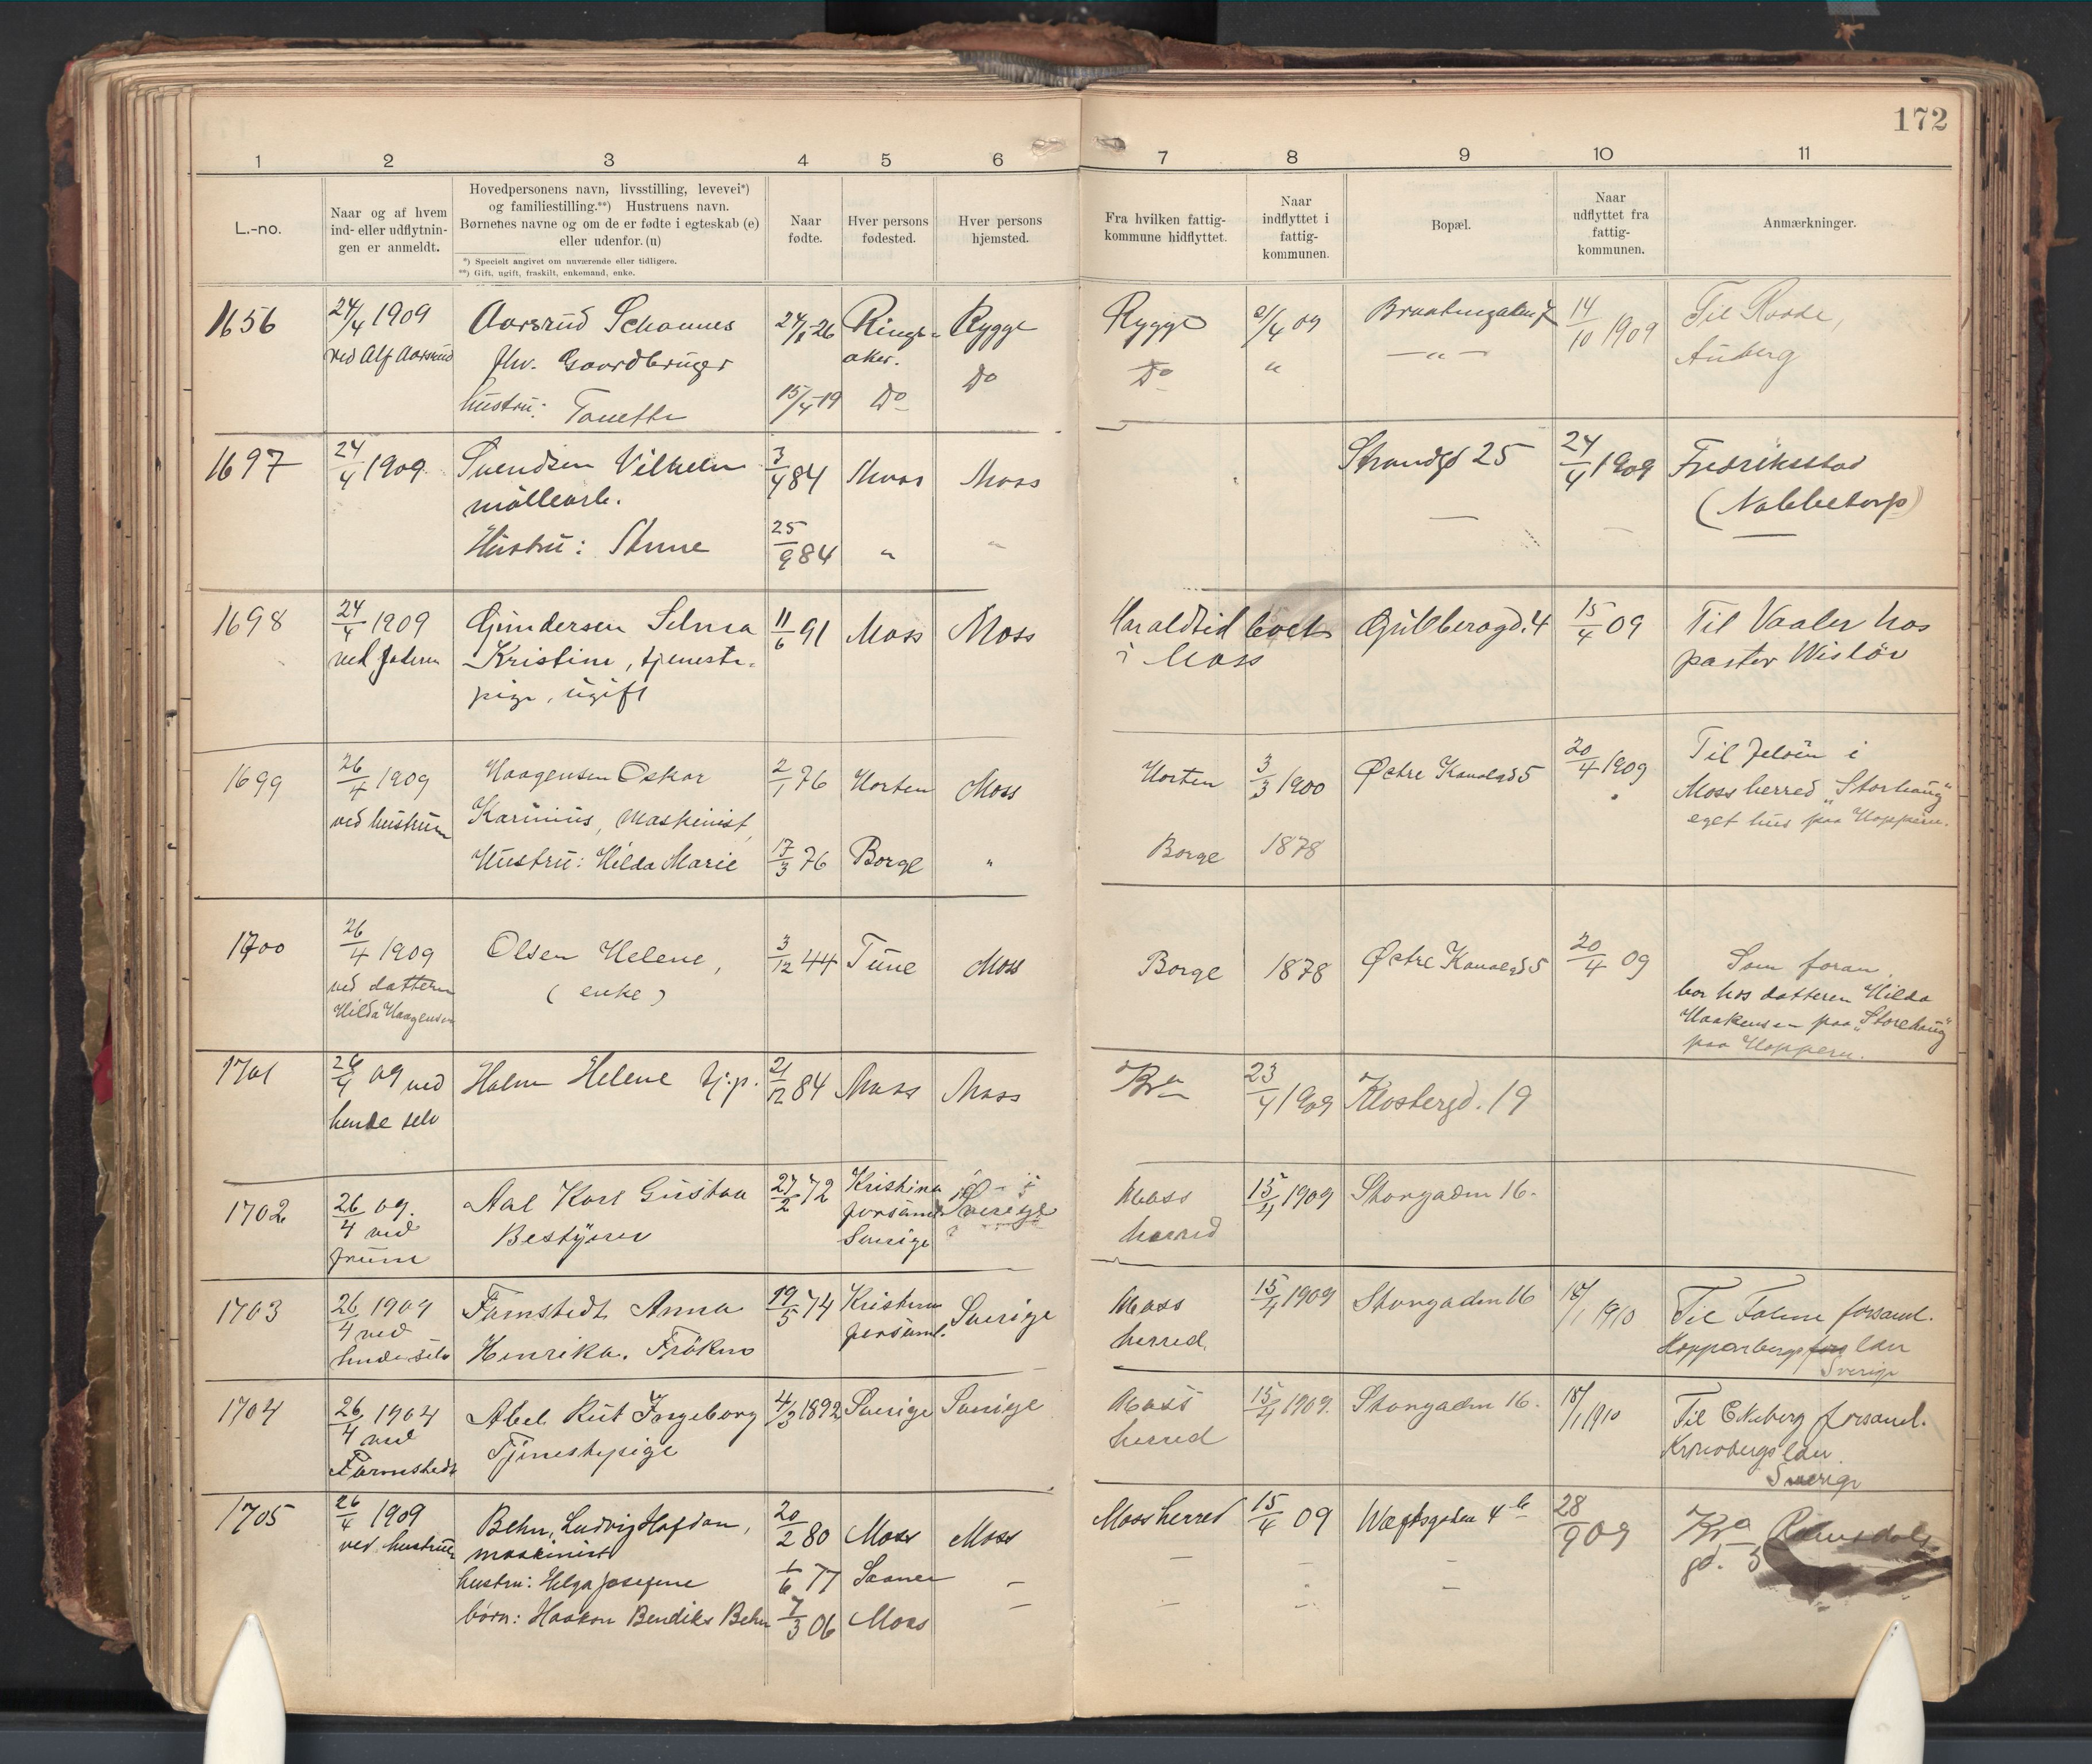 172
1 2 3 4 5 6 7 8 9 10 11
L.-no.
Naar og af hvem
ind- eller udflytnin-
gen er anmeldt.
Hovedpersonens navn, livsstilling, levevei*)
og familiestilling.**) Hustruens navn.
Børnenes navne og om de er fødte i egteskab (e)
eller udenfor. (u)
*) Specielt angivet om nuværende eller tidligere.
**) Gift, ugift, fraskilt, enkemand, enke.
Naar
fødte.
Hver persons
fødested.
Hver persons
hjemsted.
Fra hvilken fattig-
kommune hidflyttet.
Naar
indflyttet i
fattig-
kommunen.
Bopæl.
Naar
udflyttet fra
fattig-
kommunen.
Anmærkninger.
1656 24/4 1909 Aarsrud Johannes 24/8-26 Ringe- Rygge Rygge 21/4 09 14/10 1909 Til Raade,
ved Alf Aarsrud fhv. Gaardbruger aker. Do Do " — " — Auberg
hustru: Tanette 15/4-19 Do
1697 24/4 1909 Svendsen Vilhelm 3/4 84 Moss Moss Strandgd 25 24/4 1909 Fredriksstad
møllearb. (Nabbetorp)
Hustru: Anne 25/9 84 " " — —
1698 24/4 1909 Gundersen Selma 11/6 91 Moss Moss 15/4 09 Til Vaaler hos
ved faderen Kristine, tjeneste- i Moss pastor Wisløv
pige, ugift
1699 26/4 1909 Haagensen Oskar 2/1 76 Horten Moss Horten 3/3 1900 Østre Kanalgd 5 20/4 1909 Til Jeløen i
ved hustruen Karinius, Maskinist, Moss herred "Storhaug"
eget hus paa Koppern.
Hustru: Hilda Marie 17/3 76 Borge " Borge 1878
1700 26/4 1909 Olsen Helene, 3/12 44 Tune Moss Borge 1878 Østre Kanalgd 5 20/4 09 Som foran.
ved datteren (enke) bor hos datteren Hilda
Hilda Haagensen Haakensen paa "Storehaug"
paa Koppern.
1701 26/4 09 ved Holm Helene tj.p. 21/12 84 Moss Moss Kra 23/4 1909 Klostergd. 19
hende selv
1702 26/4 09. Aal Karl Gustav 27/2 72 Kristina Sverige Moss 15/4 1909 Storgaden 16.
ved Bestyrer forsaml. ? herred
fruen Sverige
1703 26/4 1909 Farnstedt Anna 19/5 74 Kristina Sverige Moss 15/4 1909 Storgaden 16 18/1 1910 Til Falun forsaml.
ved Henrika. Frøken forsaml. herred. Kopparbergs län
hende selv Sverige
1704 26/4 1904 Abel Rut Ingeborg 4/3 1892 Sverige Sverige Moss 15/4 1909. Storgaden 16. 18/1 1910 Til Ekeberg forsaml.
ved Tjenestepige herred Kronobergs län
Farnstedt Sverige
1705 26/4 1909 Behn, Ludvig Hafdan, 20/2 80 Moss Moss Moss herred 15/4 09 Værftsgaden 4 b 28/9 09 Kra Ramsdals
ved hustruen maskinist — — — gd. 3
hustru: Helga Josefine 1/6 77 Saaner —
børn: Haakon Bendiks Behn 7/3 06 Moss —